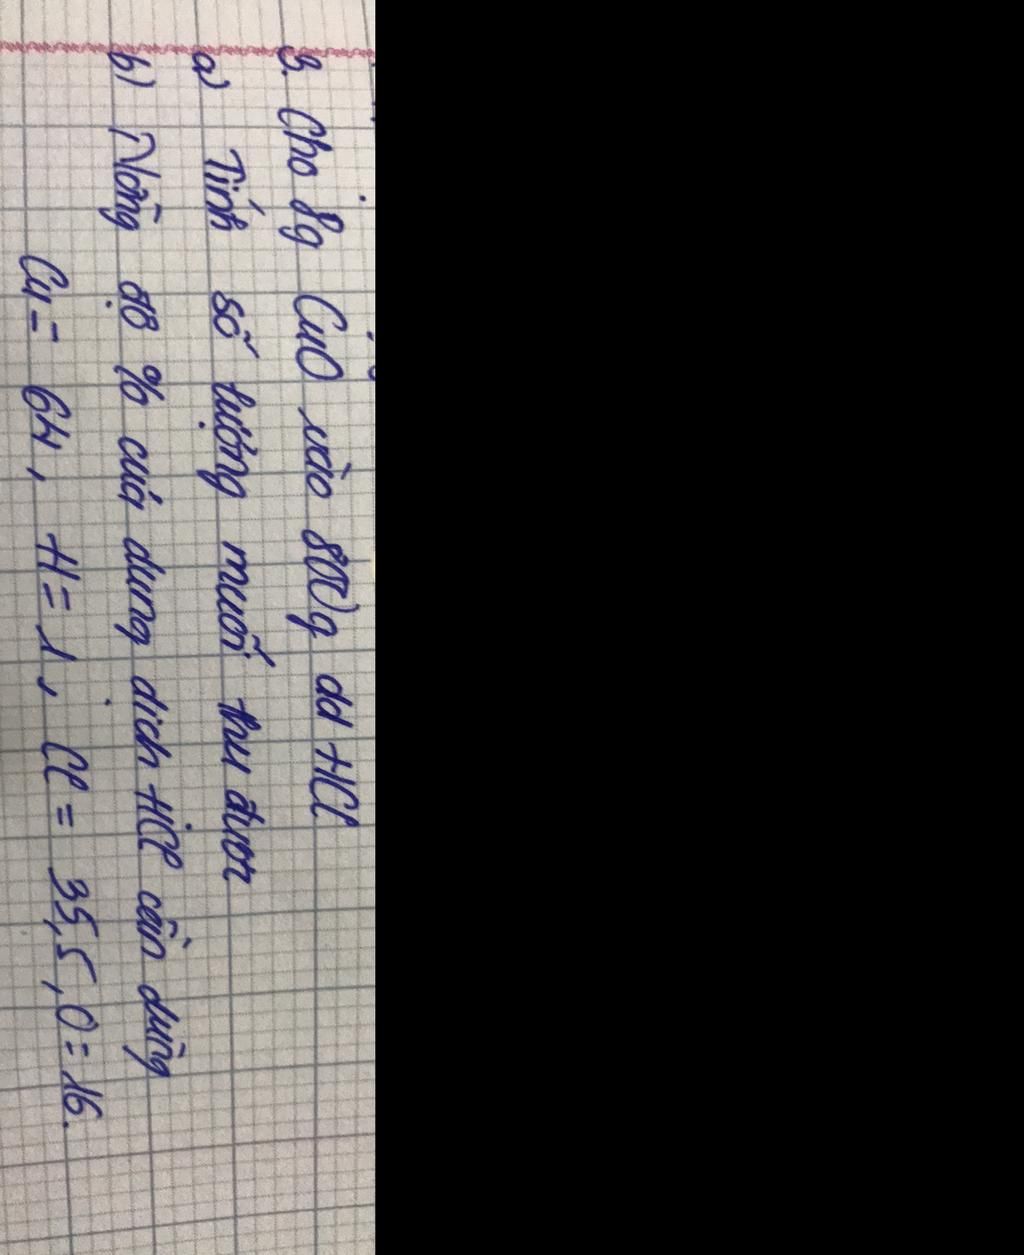 3. Cho 8g CuO vào 800g dd HCl
a) Tính số lượng muối thu được
b) Nồng độ % của dung dịch HCl cần dùng
Cu = 64, H = 1, Cl = 35,5, O = 16.